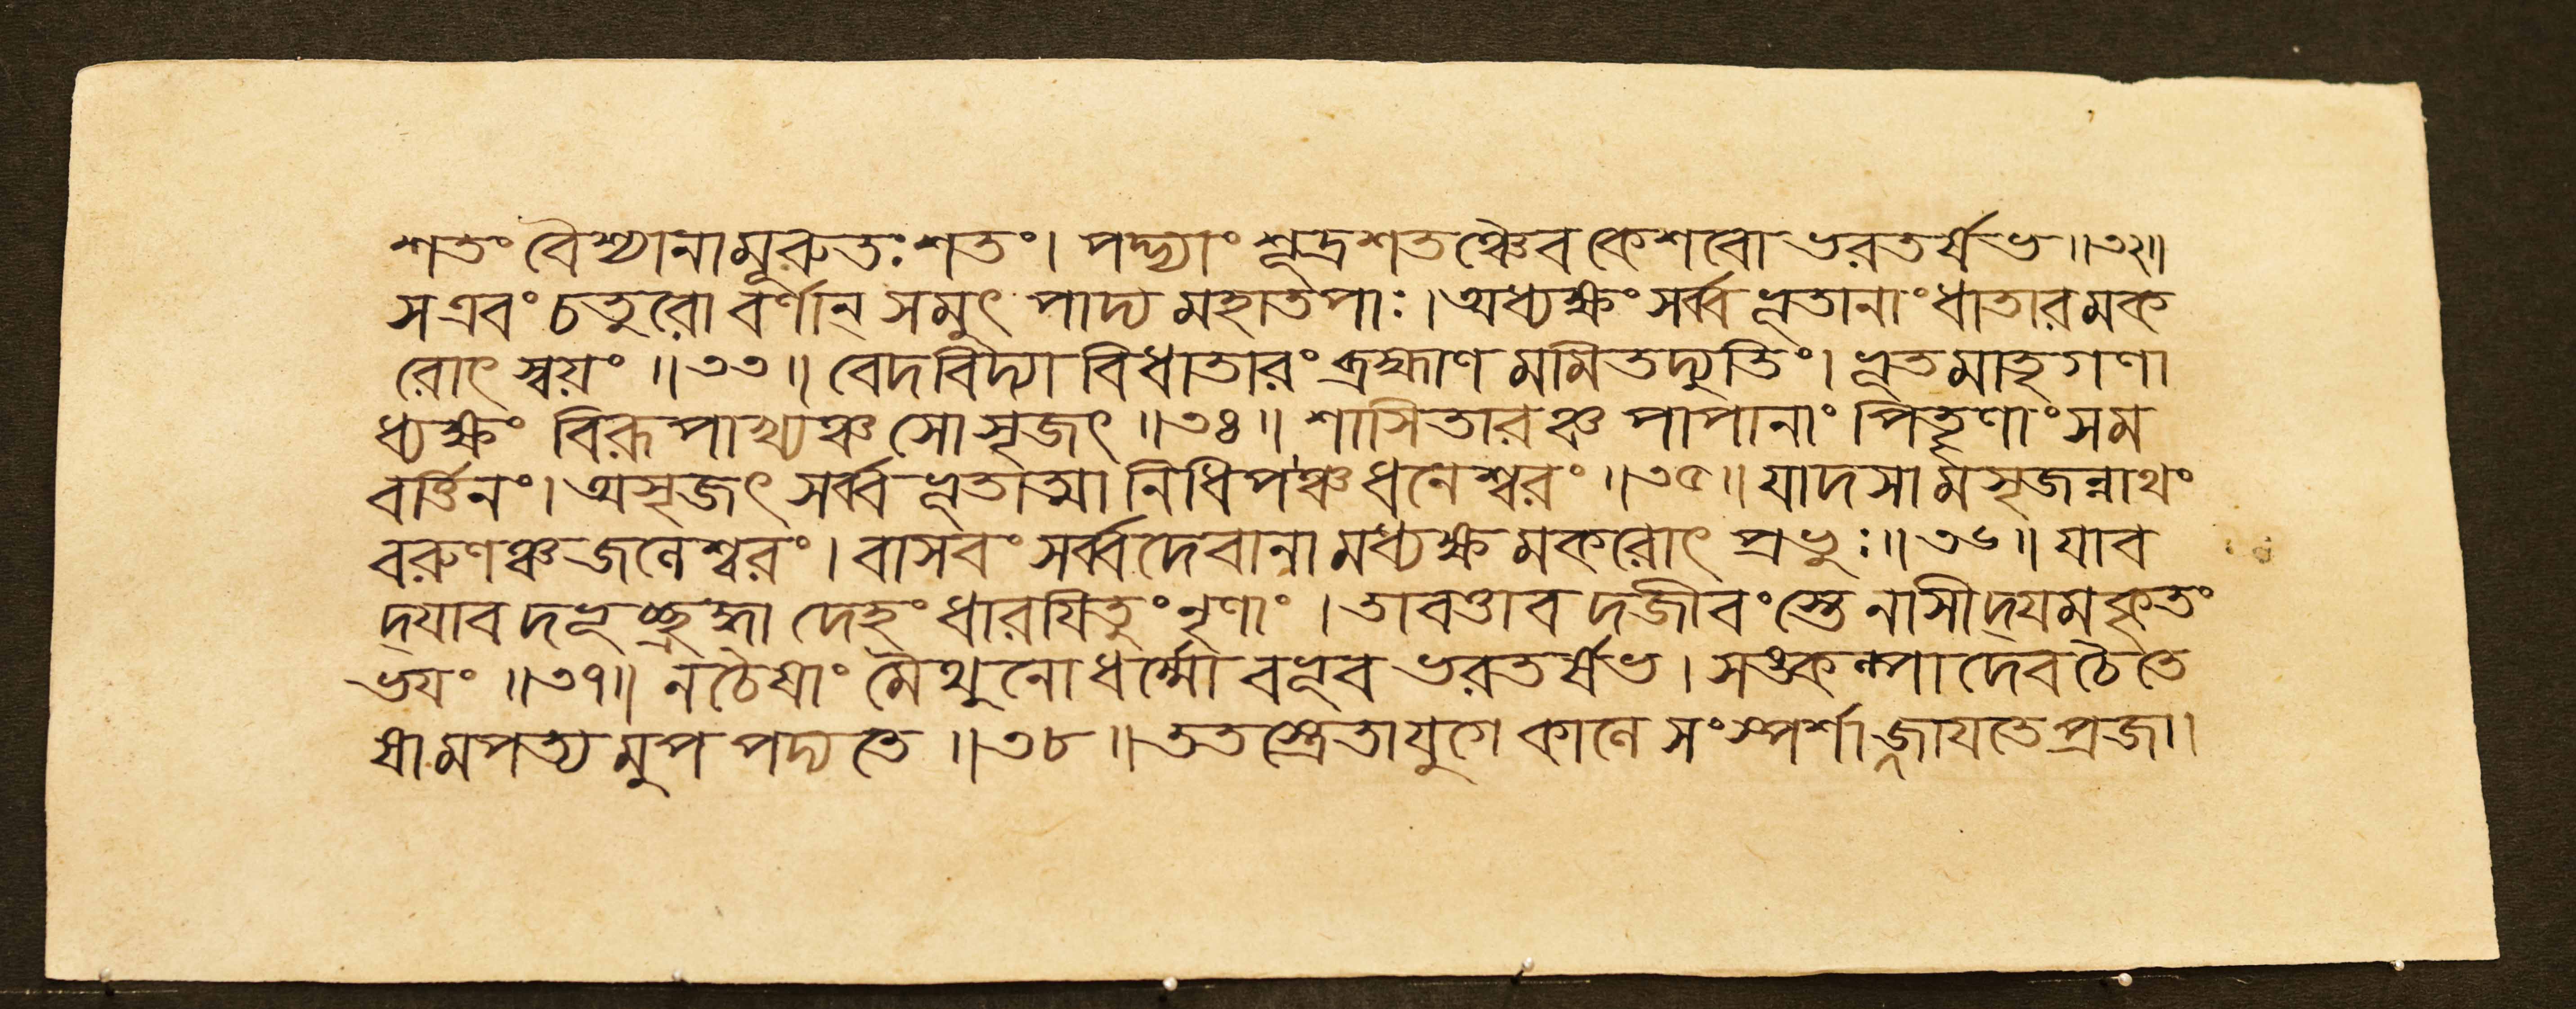 শতং বৈশ্যানামূরুতঃ শতং। পদ্ভ্যাং শূদ্রশতঞ্চৈব কেশবো ভরতর্ষভ॥৩২॥
স এবং চতুরো বর্ণান্ সমুৎ পাদ্য মহাতপাঃ। অধ্যক্ষং সর্ব্ব ভূতানাং ধাতারমক
রোৎ স্বয়ং ॥৩৩॥ বেদবিদ্যা বিধাতারং ব্রহ্মাণ মমিতদ্যুতিং। ভূতমাতৃগণা
ধ্যক্ষং বিরূপাখ্যঞ্চ সোসৃজৎ ॥৩৪॥ শাসিতারঞ্চ পাপানাং পিতৃণাং সম
বর্ত্তিনং। অসৃজৎ সর্ব্ব ভূতাত্মা নিধিপঞ্চ ধনেশ্বরং ॥৩৫॥ যাদসামসৃজন্নাথং
বরুণঞ্চ জনেশ্বরং। বাসবং সর্ব্বদেবানামধ্যক্ষমকরোৎ প্রভুঃ॥৩৬॥ যাব
দ্যাব দভূচ্ছ্রদ্ধা দেহং ধারযিতুং নৃণাং। তাবত্তাব দজীবংস্তে নাসীদ্যমকৃতং
ভযং ॥৩৭॥ নচৈষাং মৈথুনো ধর্ম্মো বভূব ভরতর্ষভ। সঙ্কল্পাদেব চৈতে
ষামপত্য মুপ পদ্যতে ॥৩৮॥ ততস্ত্রেতাযুগে কালে সংস্পর্শাজ্জাযতে প্রজা।